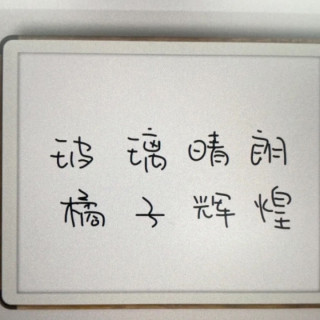 玻璃晴朗
橘子辉煌